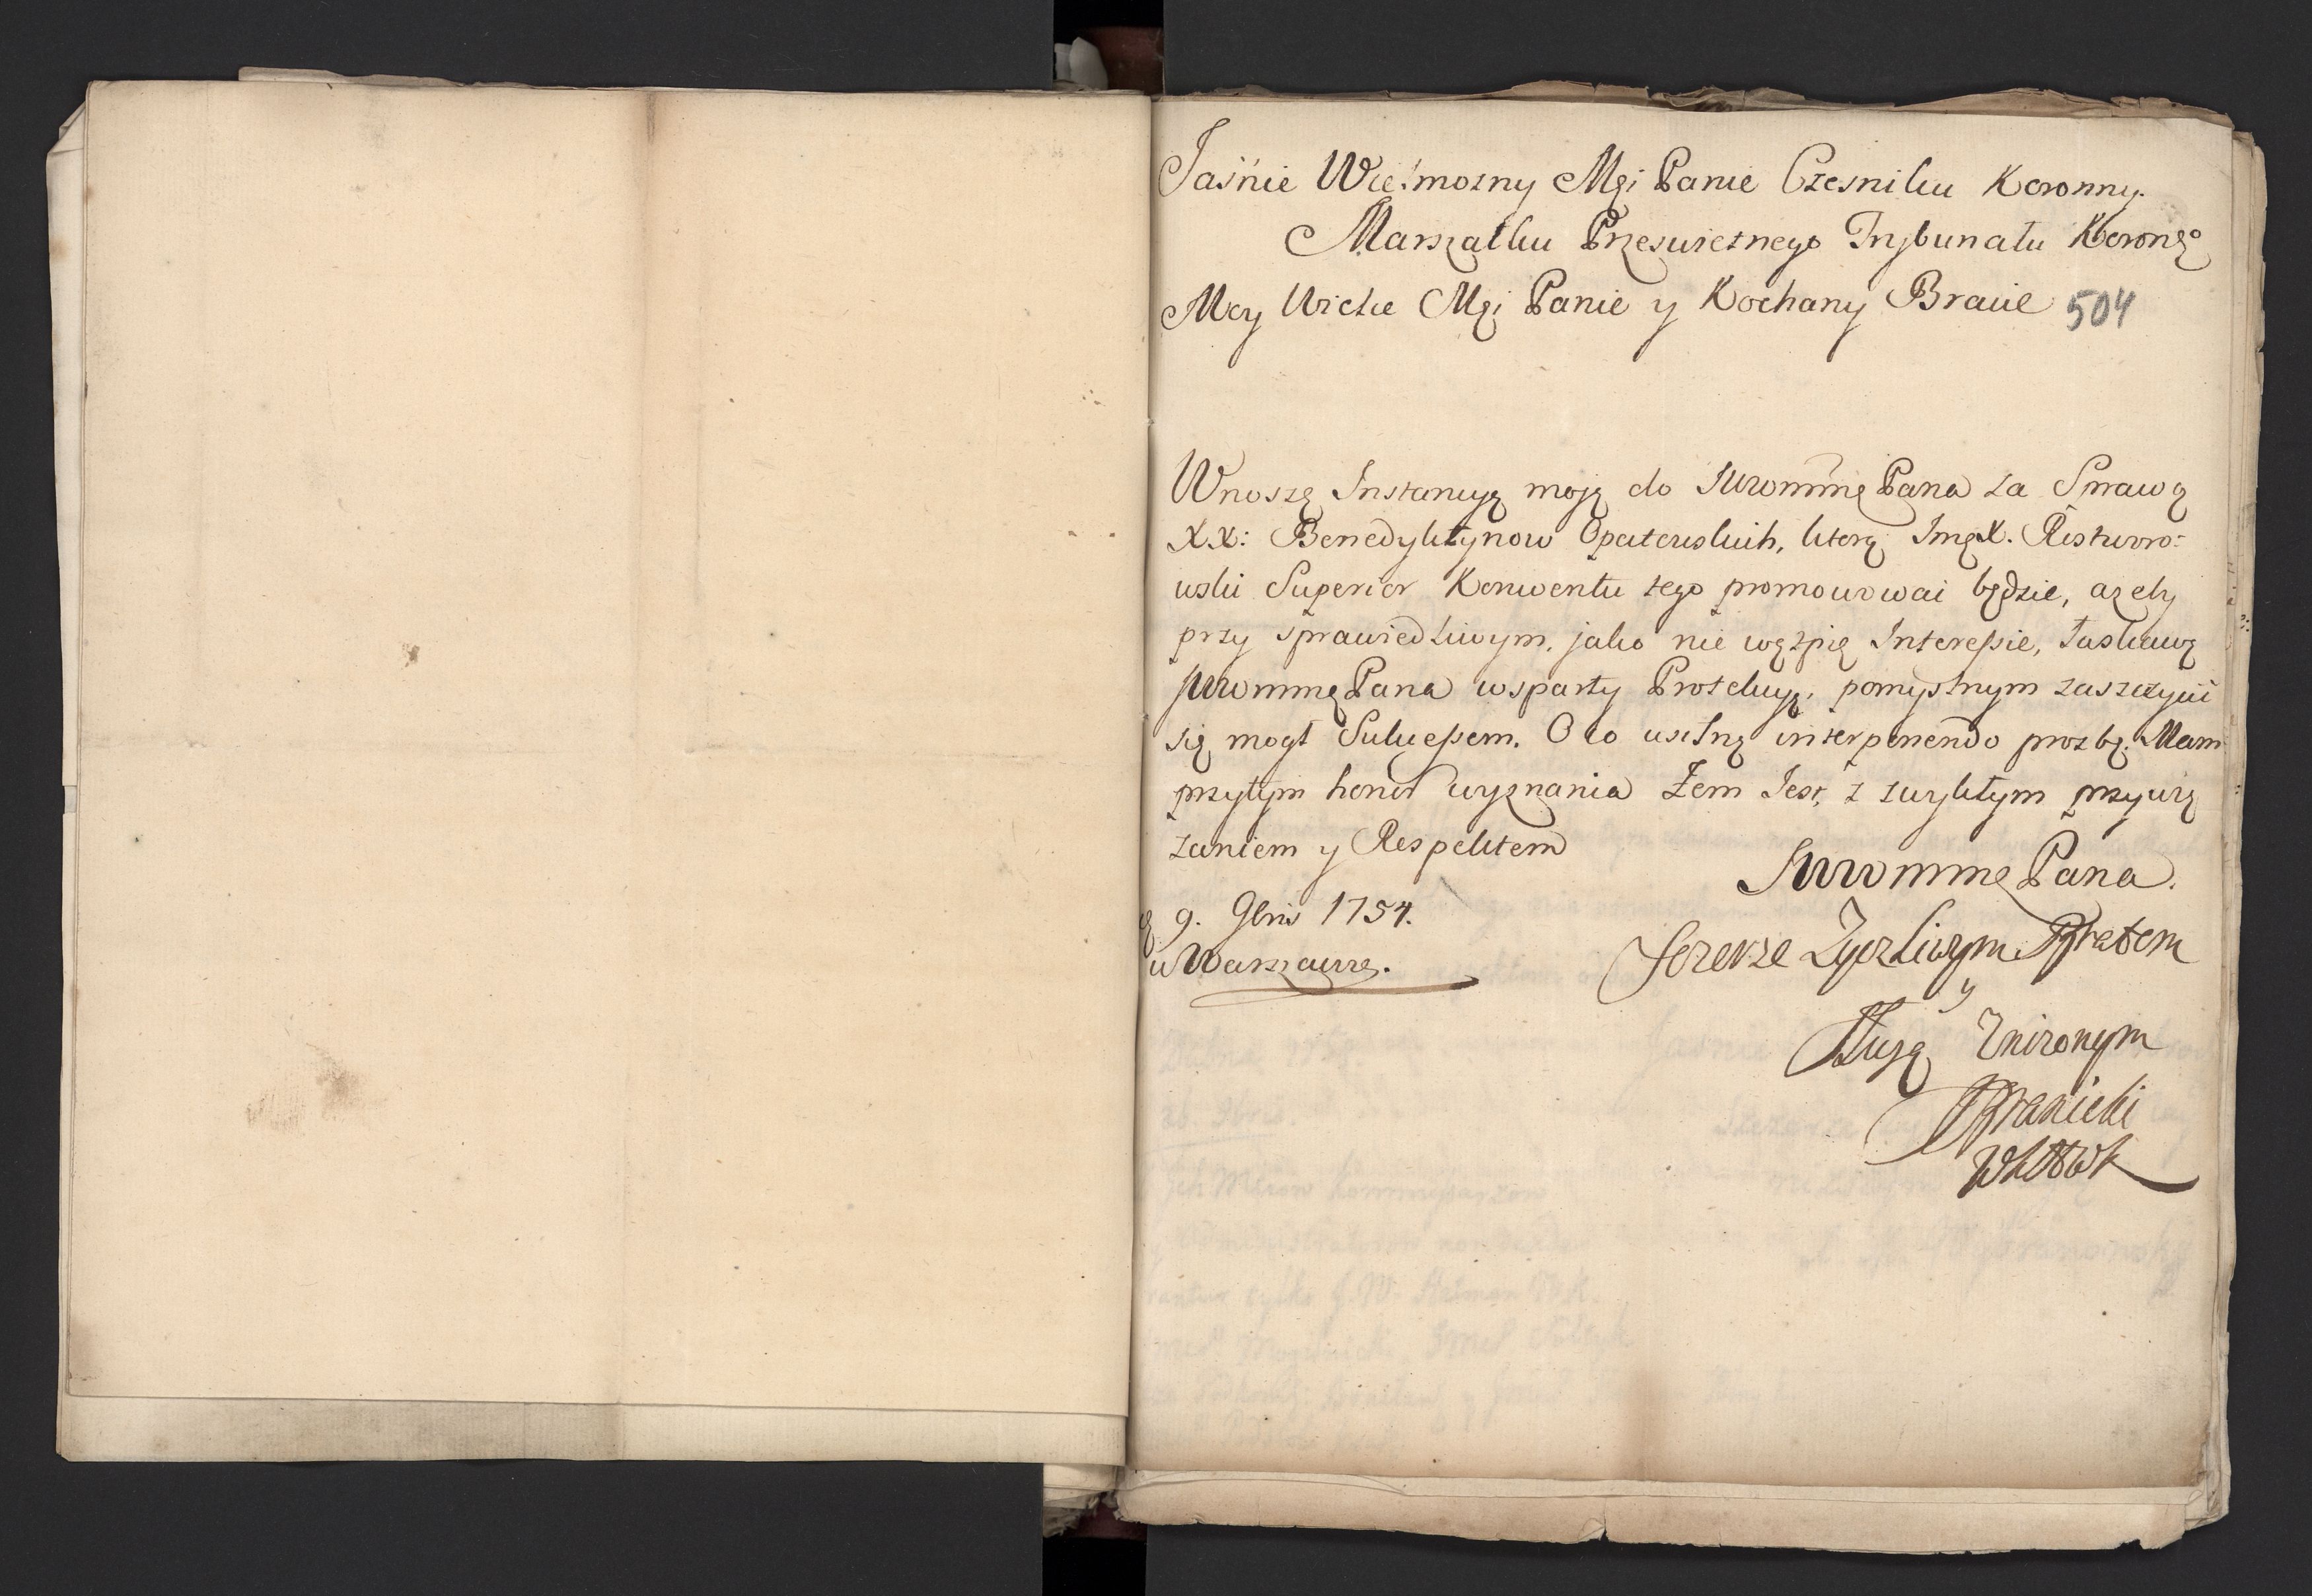 Jaśnie Wielmozny Mći Panie Czesniku Koronny.
Marszałku Przeswietnego Trybunału Korongo
Mcy Wielce Mći Panie y Kochany Bracie 504
Wnoszę Instancyą moją do JWWomme Pana za Sprawą
XX: Benedyktynow Opatowskich, ktorą Jmć X. Rostworo:
wski Superior Konwentu tego promowowac będzie, azeby
przy sprawiedliwym, jako nie wątpię Interessie, łaskawą
JWWomme Pana wsparty Protekcyą, pomyslnym zaszczycić
się mogł Sukcessem. O co usilną interponendo prozbę. Mam
przytym honor wyznania Żem Jest, z zwykłym przywią
zaniem y Respektem
JWWomme Pana.
9. 9bris 1754.
w Warszawie.
Szerze Zyczliwym Bratem
y
Sługą Unizonym
JKBranicki
WKHWK